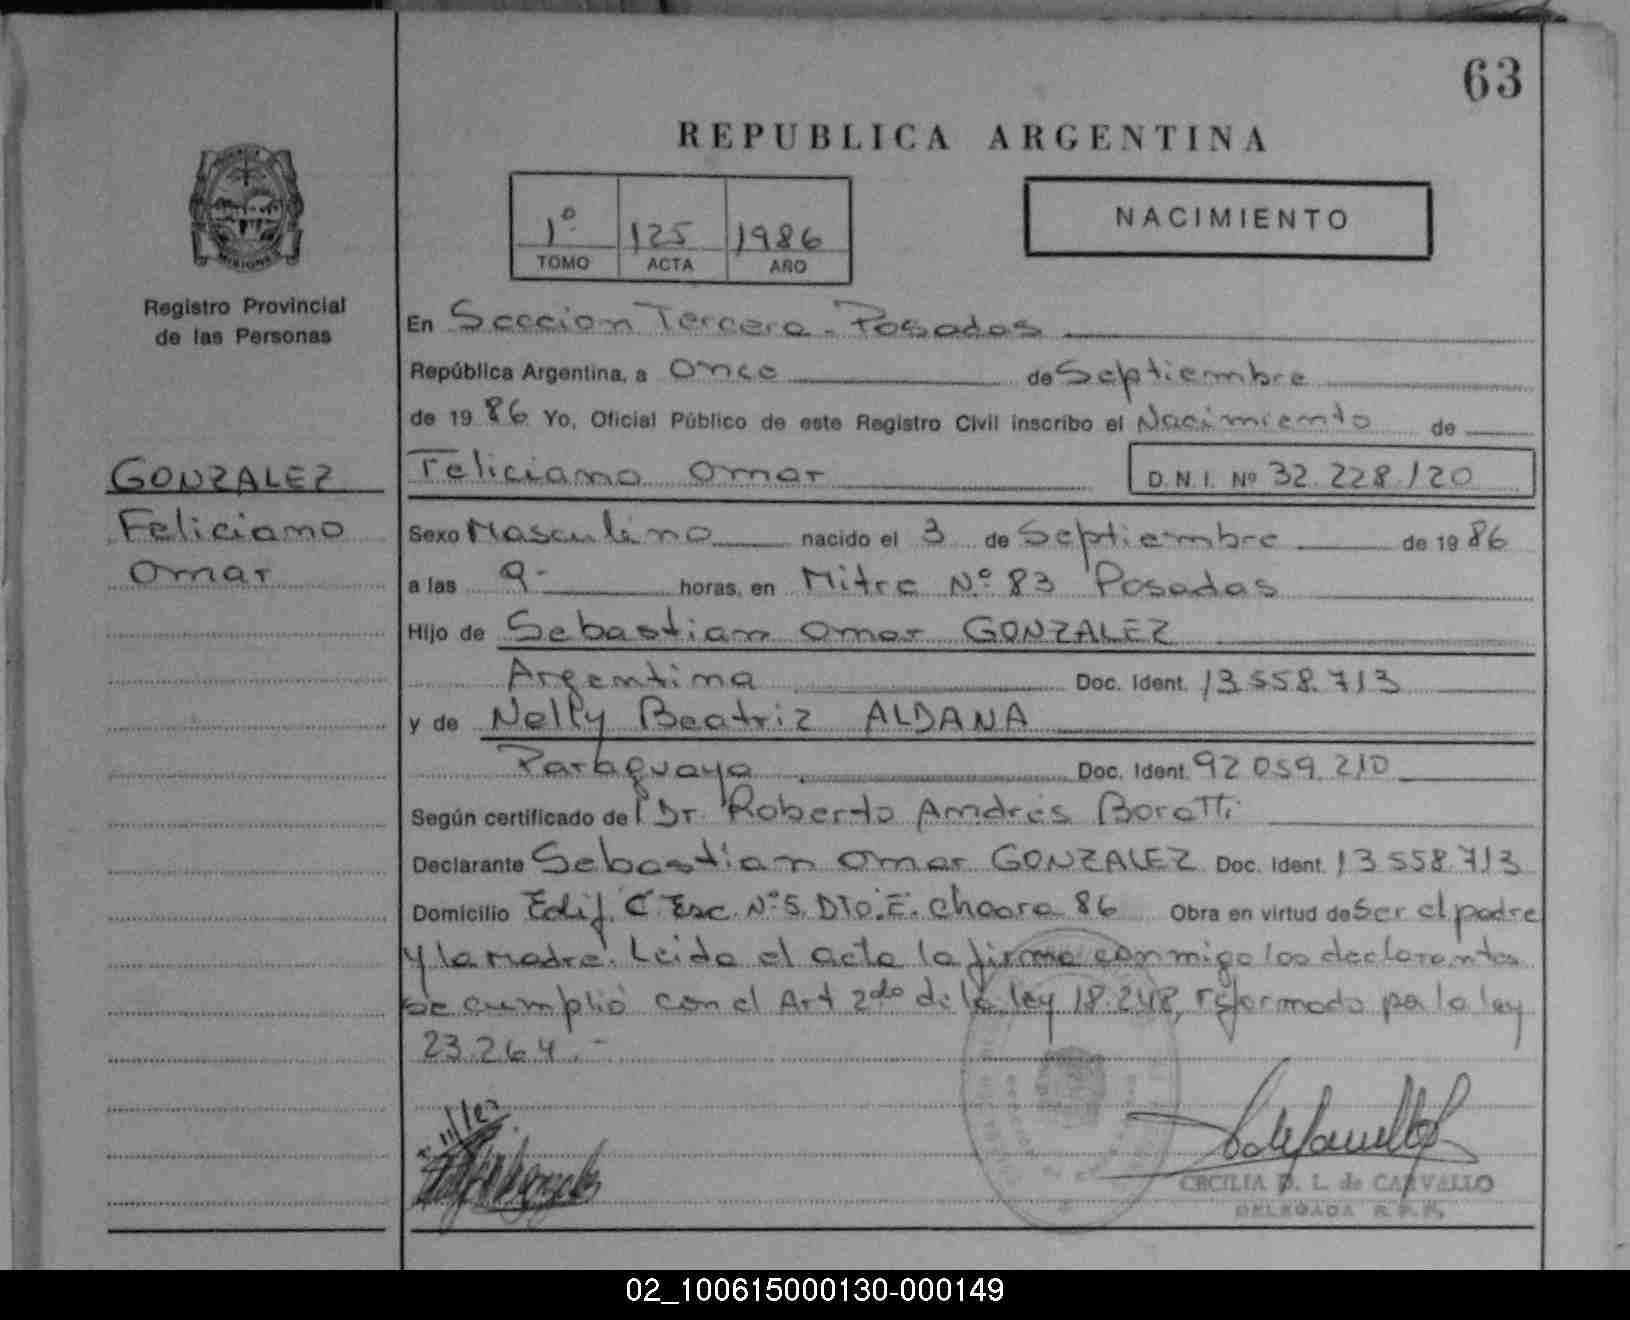 63
REPUBLICA ARGENTINA
1º 125 1986
TOMO ACTA AÑO
NACIMIENTO
MISIONES
Registro Provincial
de las Personas
GONZALEZ
Feliciano
Omar
En Seccion Tercera - Posadas
República Argentina, a Once de Septiembre
de 1986 Yo, Oficial Público de este Registro Civil inscribo el Nacimiento de
Feliciano Omar D.N.I. Nº 32.228.120
Sexo Masculino nacido el 3 de Septiembre de 1986
a las 9- horas, en Mitre Nº 83 Posadas
Hijo de Sebastian Omar GONZALEZ
Argentina Doc. Ident. 13.558.713
y de Nelly Beatriz ALDANA
Paraguaya Doc. Ident. 92.059.210
Según certificado del Dr. Roberto Andrés Boratti
Declarante Sebastian Omar GONZALEZ Doc. Ident. 13.558.713
Domicilio Edif. C Esc. Nº 5. DTO. E. Chacra 86 Obra en virtud de Ser el padre
y la madre. Leida el acta la firma conmigo los declarantes
se cumplió con el Art 2do de la ley 18.248, reformada por la ley
23.264.-
CECILIA D. L. de CARVALLO
DELEGADA R.P.P.
02_100615000130-000149